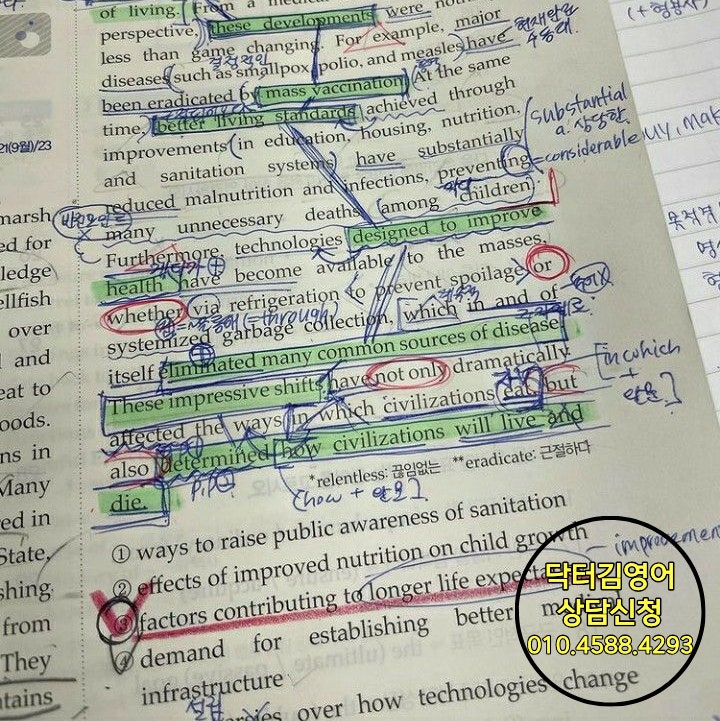 of living. From a
these developments were
perspective,
less than game changing. For example, major
현재완료
수동태.
diseases (such as smallpox, polio, and measles) have
been eradicated by mass vaccination. At the same
time, better living standards achieved through
improvements in education, housing, nutrition,
and sanitation systems have substantially
substantial
a. 상당한.
= considerable
reduced malnutrition and infections, preventing
many unnecessary deaths among children.
Furthermore, technologies designed to improve
health have become available to the masses,
whether via refrigeration to prevent spoilage or
(= through)
systemized garbage collection, which in and of
itself eliminated many common sources of disease.
These impressive shifts have not only dramatically
affected the ways in which civilizations eat but
in which
+
also determined how civilizations will live and
die.
*relentless: 끊임없는 **eradicate: 근절하다
① ways to raise public awareness of sanitation
② effects of improved nutrition on child growth
③ factors contributing to longer life
④ demand for establishing better
infrastructure
over how technologies change
21(9월)/23
marsh
ed for
ledge
ellfish
over
and
eat to
oods.
ns in
Many
ed in
State,
shing
from
They
tains
닥터김영어
상담신청
010.4588.4293